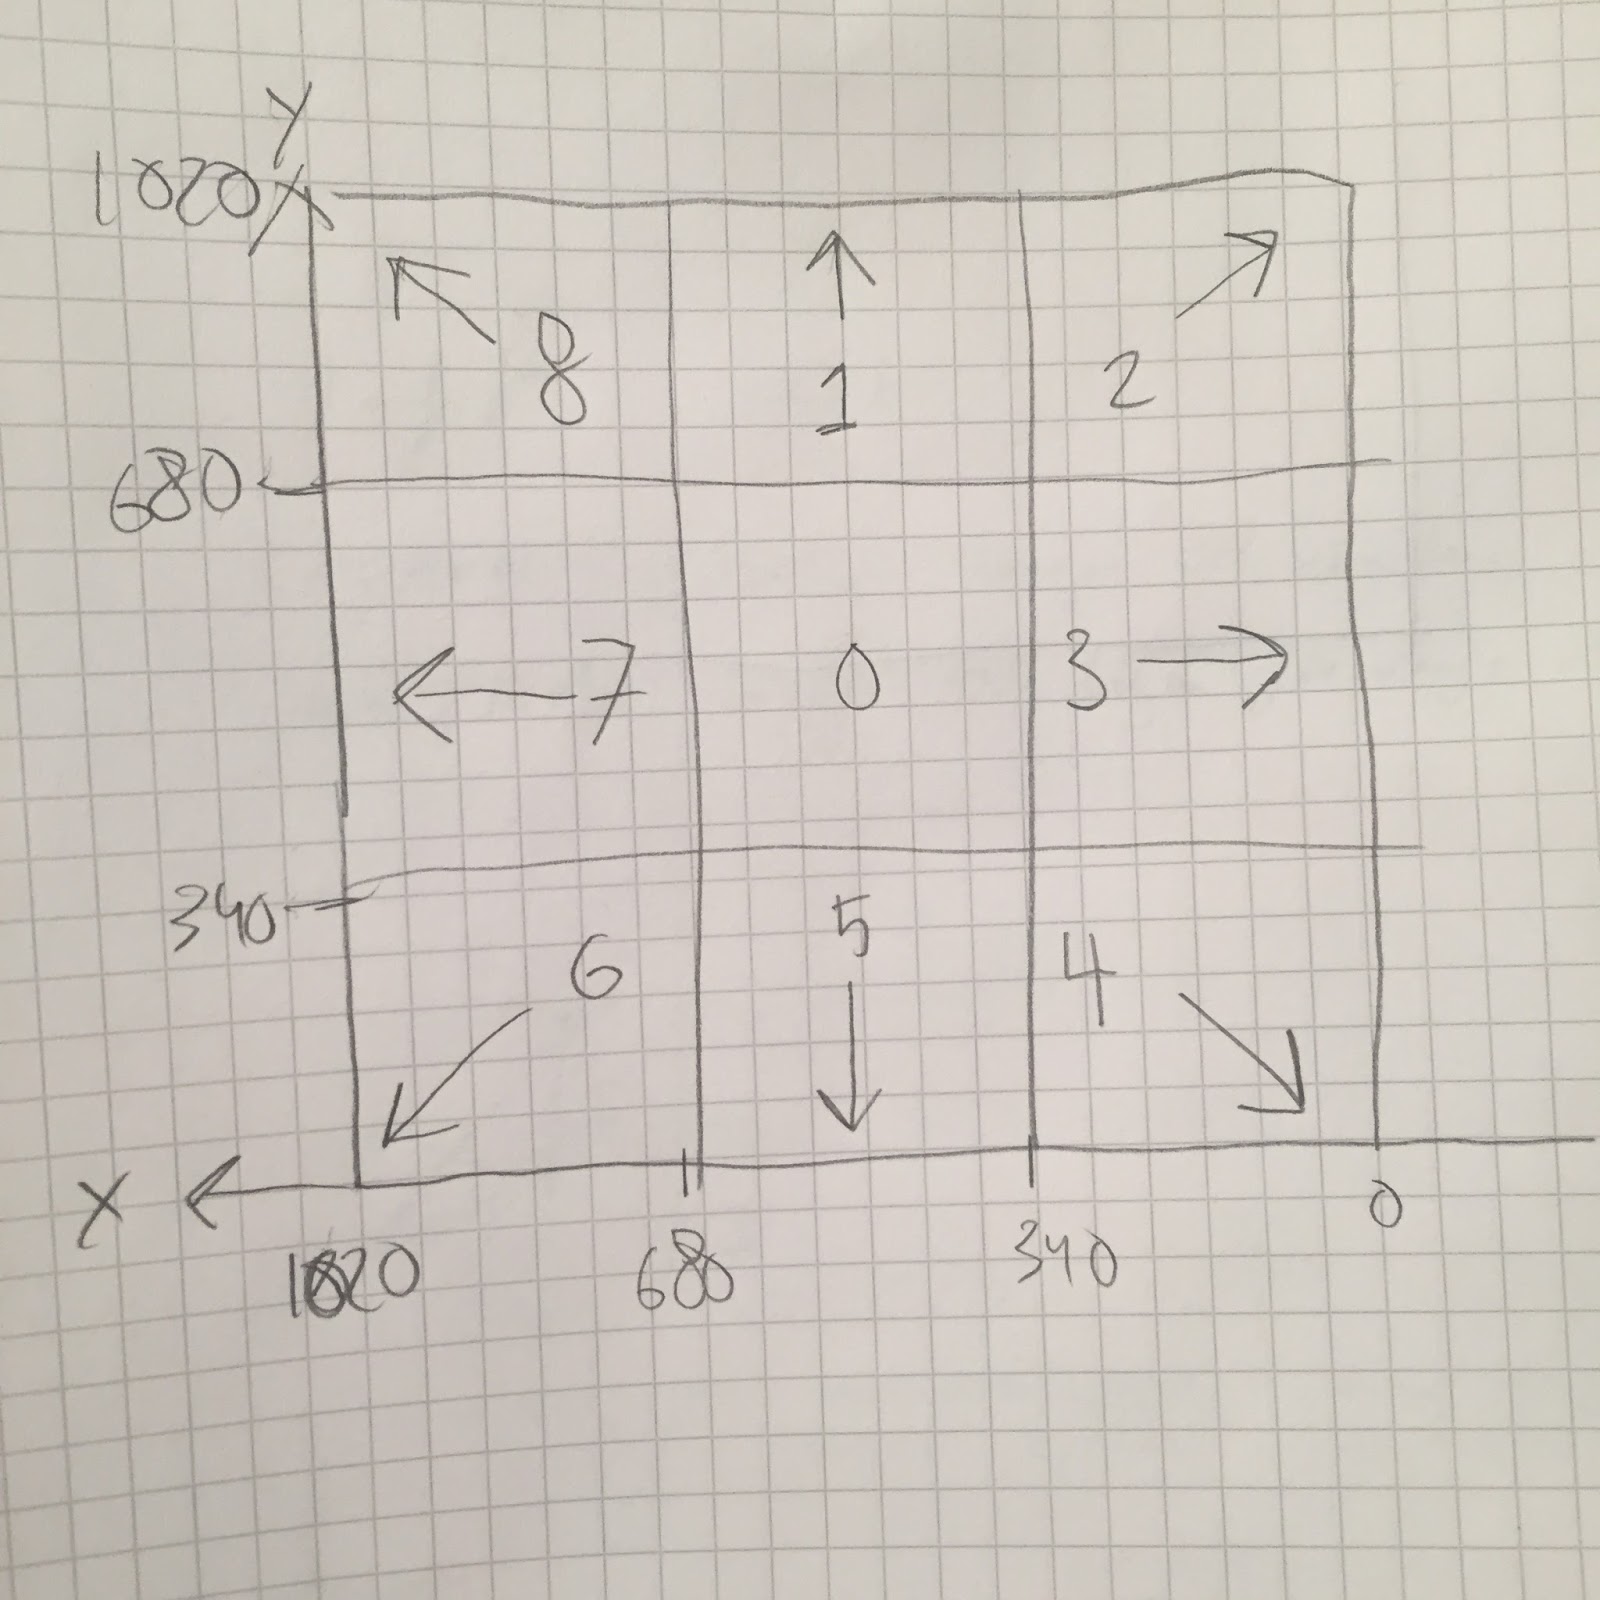 Y
1020
8 1 2
680
7 0 3
340
6 5 4
X
1020 680 340 0